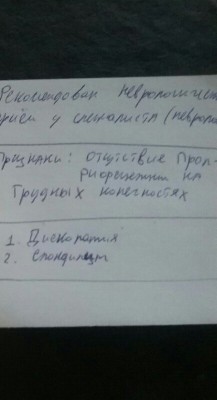 Рекомендован неврологичес
приём у специалиста (невроло
Признаки: отсутствие Проп-
риорецепции на
Грудных конечностях
1. Дископатия
2. Спондилит